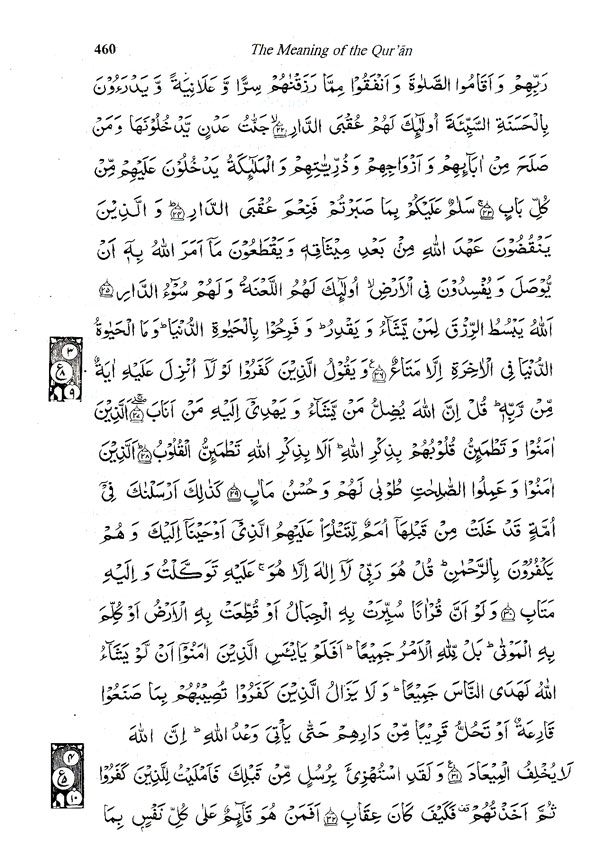 460 The Meaning of the Qur'ān
رَبِّهِمْ وَ اَقَامُوا الصَّلٰوةَ وَ اَنْفَقُوْا مِمَّا رَزَقْنٰهُمْ سِرًّا وَّ عَلَانِيَةً وَّ يَدْرَءُوْنَ
بِالْحَسَنَةِ السَّيِّئَةَ اُولٰٓئِكَ لَهُمْ عُقْبَى الدَّارِۙ۝۲۲ جَنّٰتُ عَدْنٍ يَّدْخُلُوْنَهَا وَمَنْ
صَلَحَ مِنْ اٰبَآئِهِمْ وَ اَزْوَاجِهِمْ وَ ذُرِّيّٰتِهِمْ وَ الْمَلٰٓئِكَةُ يَدْخُلُوْنَ عَلَيْهِمْ مِّنْ
كُلِّ بَابٍۚ۝۲۳ سَلٰمٌ عَلَيْكُمْ بِمَا صَبَرْتُمْ فَنِعْمَ عُقْبَى الدَّارِؕ۝۲۴ وَ الَّذِيْنَ
يَنْقُضُوْنَ عَهْدَ اللّٰهِ مِنْۢ بَعْدِ مِيْثَاقِهٖ وَ يَقْطَعُوْنَ مَاۤ اَمَرَ اللّٰهُ بِهٖۤ اَنْ
يُّوْصَلَ وَ يُفْسِدُوْنَ فِي الْاَرْضِۙ اُولٰٓئِكَ لَهُمُ اللَّعْنَةُ وَ لَهُمْ سُوْٓءُ الدَّارِ۝۲۵
اَللّٰهُ يَبْسُطُ الرِّزْقَ لِمَنْ يَّشَآءُ وَ يَقْدِرُؕ وَ فَرِحُوْا بِالْحَيٰوةِ الدُّنْيَاؕ وَ مَا الْحَيٰوةُ
الدُّنْيَا فِي الْاٰخِرَةِ اِلَّا مَتَاعٌ۝۲۶ وَ يَقُوْلُ الَّذِيْنَ كَفَرُوْا لَوْ لَاۤ اُنْزِلَ عَلَيْهِ اٰيَةٌ
مِّنْ رَّبِّهٖؕ قُلْ اِنَّ اللّٰهَ يُضِلُّ مَنْ يَّشَآءُ وَ يَهْدِيْۤ اِلَيْهِ مَنْ اَنَابَۖۚ۝۲۷ اَلَّذِيْنَ
اٰمَنُوْا وَ تَطْمَئِنُّ قُلُوْبُهُمْ بِذِكْرِ اللّٰهِؕ اَلَا بِذِكْرِ اللّٰهِ تَطْمَئِنُّ الْقُلُوْبُؕ۝۲۸ اَلَّذِيْنَ
اٰمَنُوْا وَ عَمِلُوا الصّٰلِحٰتِ طُوْبٰى لَهُمْ وَ حُسْنُ مَاٰبٍ۝۲۹ كَذٰلِكَ اَرْسَلْنٰكَ فِيْۤ
اُمَّةٍ قَدْ خَلَتْ مِنْ قَبْلِهَاۤ اُمَمٌ لِّتَتْلُوَا۟ عَلَيْهِمُ الَّذِيْۤ اَوْحَيْنَاۤ اِلَيْكَ وَ هُمْ
يَكْفُرُوْنَ بِالرَّحْمٰنِؕ قُلْ هُوَ رَبِّيْ لَاۤ اِلٰهَ اِلَّا هُوَۚ عَلَيْهِ تَوَكَّلْتُ وَ اِلَيْهِ
مَتَابِ۝۳۰ وَ لَوْ اَنَّ قُرْاٰنًا سُيِّرَتْ بِهِ الْجِبَالُ اَوْ قُطِّعَتْ بِهِ الْاَرْضُ اَوْ كُلِّمَ
بِهِ الْمَوْتٰىؕ بَلْ لِّلّٰهِ الْاَمْرُ جَمِيْعًاؕ اَفَلَمْ يَايْـَٔسِ الَّذِيْنَ اٰمَنُوْۤا اَنْ لَّوْ يَشَآءُ
اللّٰهُ لَهَدَى النَّاسَ جَمِيْعًاؕ وَ لَا يَزَالُ الَّذِيْنَ كَفَرُوْا تُصِيْبُهُمْ بِمَا صَنَعُوْا
قَارِعَةٌ اَوْ تَحُلُّ قَرِيْبًا مِّنْ دَارِهِمْ حَتّٰى يَاْتِيَ وَعْدُ اللّٰهِؕ اِنَّ اللّٰهَ
لَا يُخْلِفُ الْمِيْعَادَ۝۳۱ وَ لَقَدِ اسْتُهْزِئَ بِرُسُلٍ مِّنْ قَبْلِكَ فَاَمْلَيْتُ لِلَّذِيْنَ كَفَرُوْا
ثُمَّ اَخَذْتُهُمْ فَكَيْفَ كَانَ عِقَابِ۝۳۲ اَفَمَنْ هُوَ قَآئِمٌ عَلٰى كُلِّ نَفْسٍۭ بِمَا
۳
ع
۸
۹
۴
ع
۵
۱۰